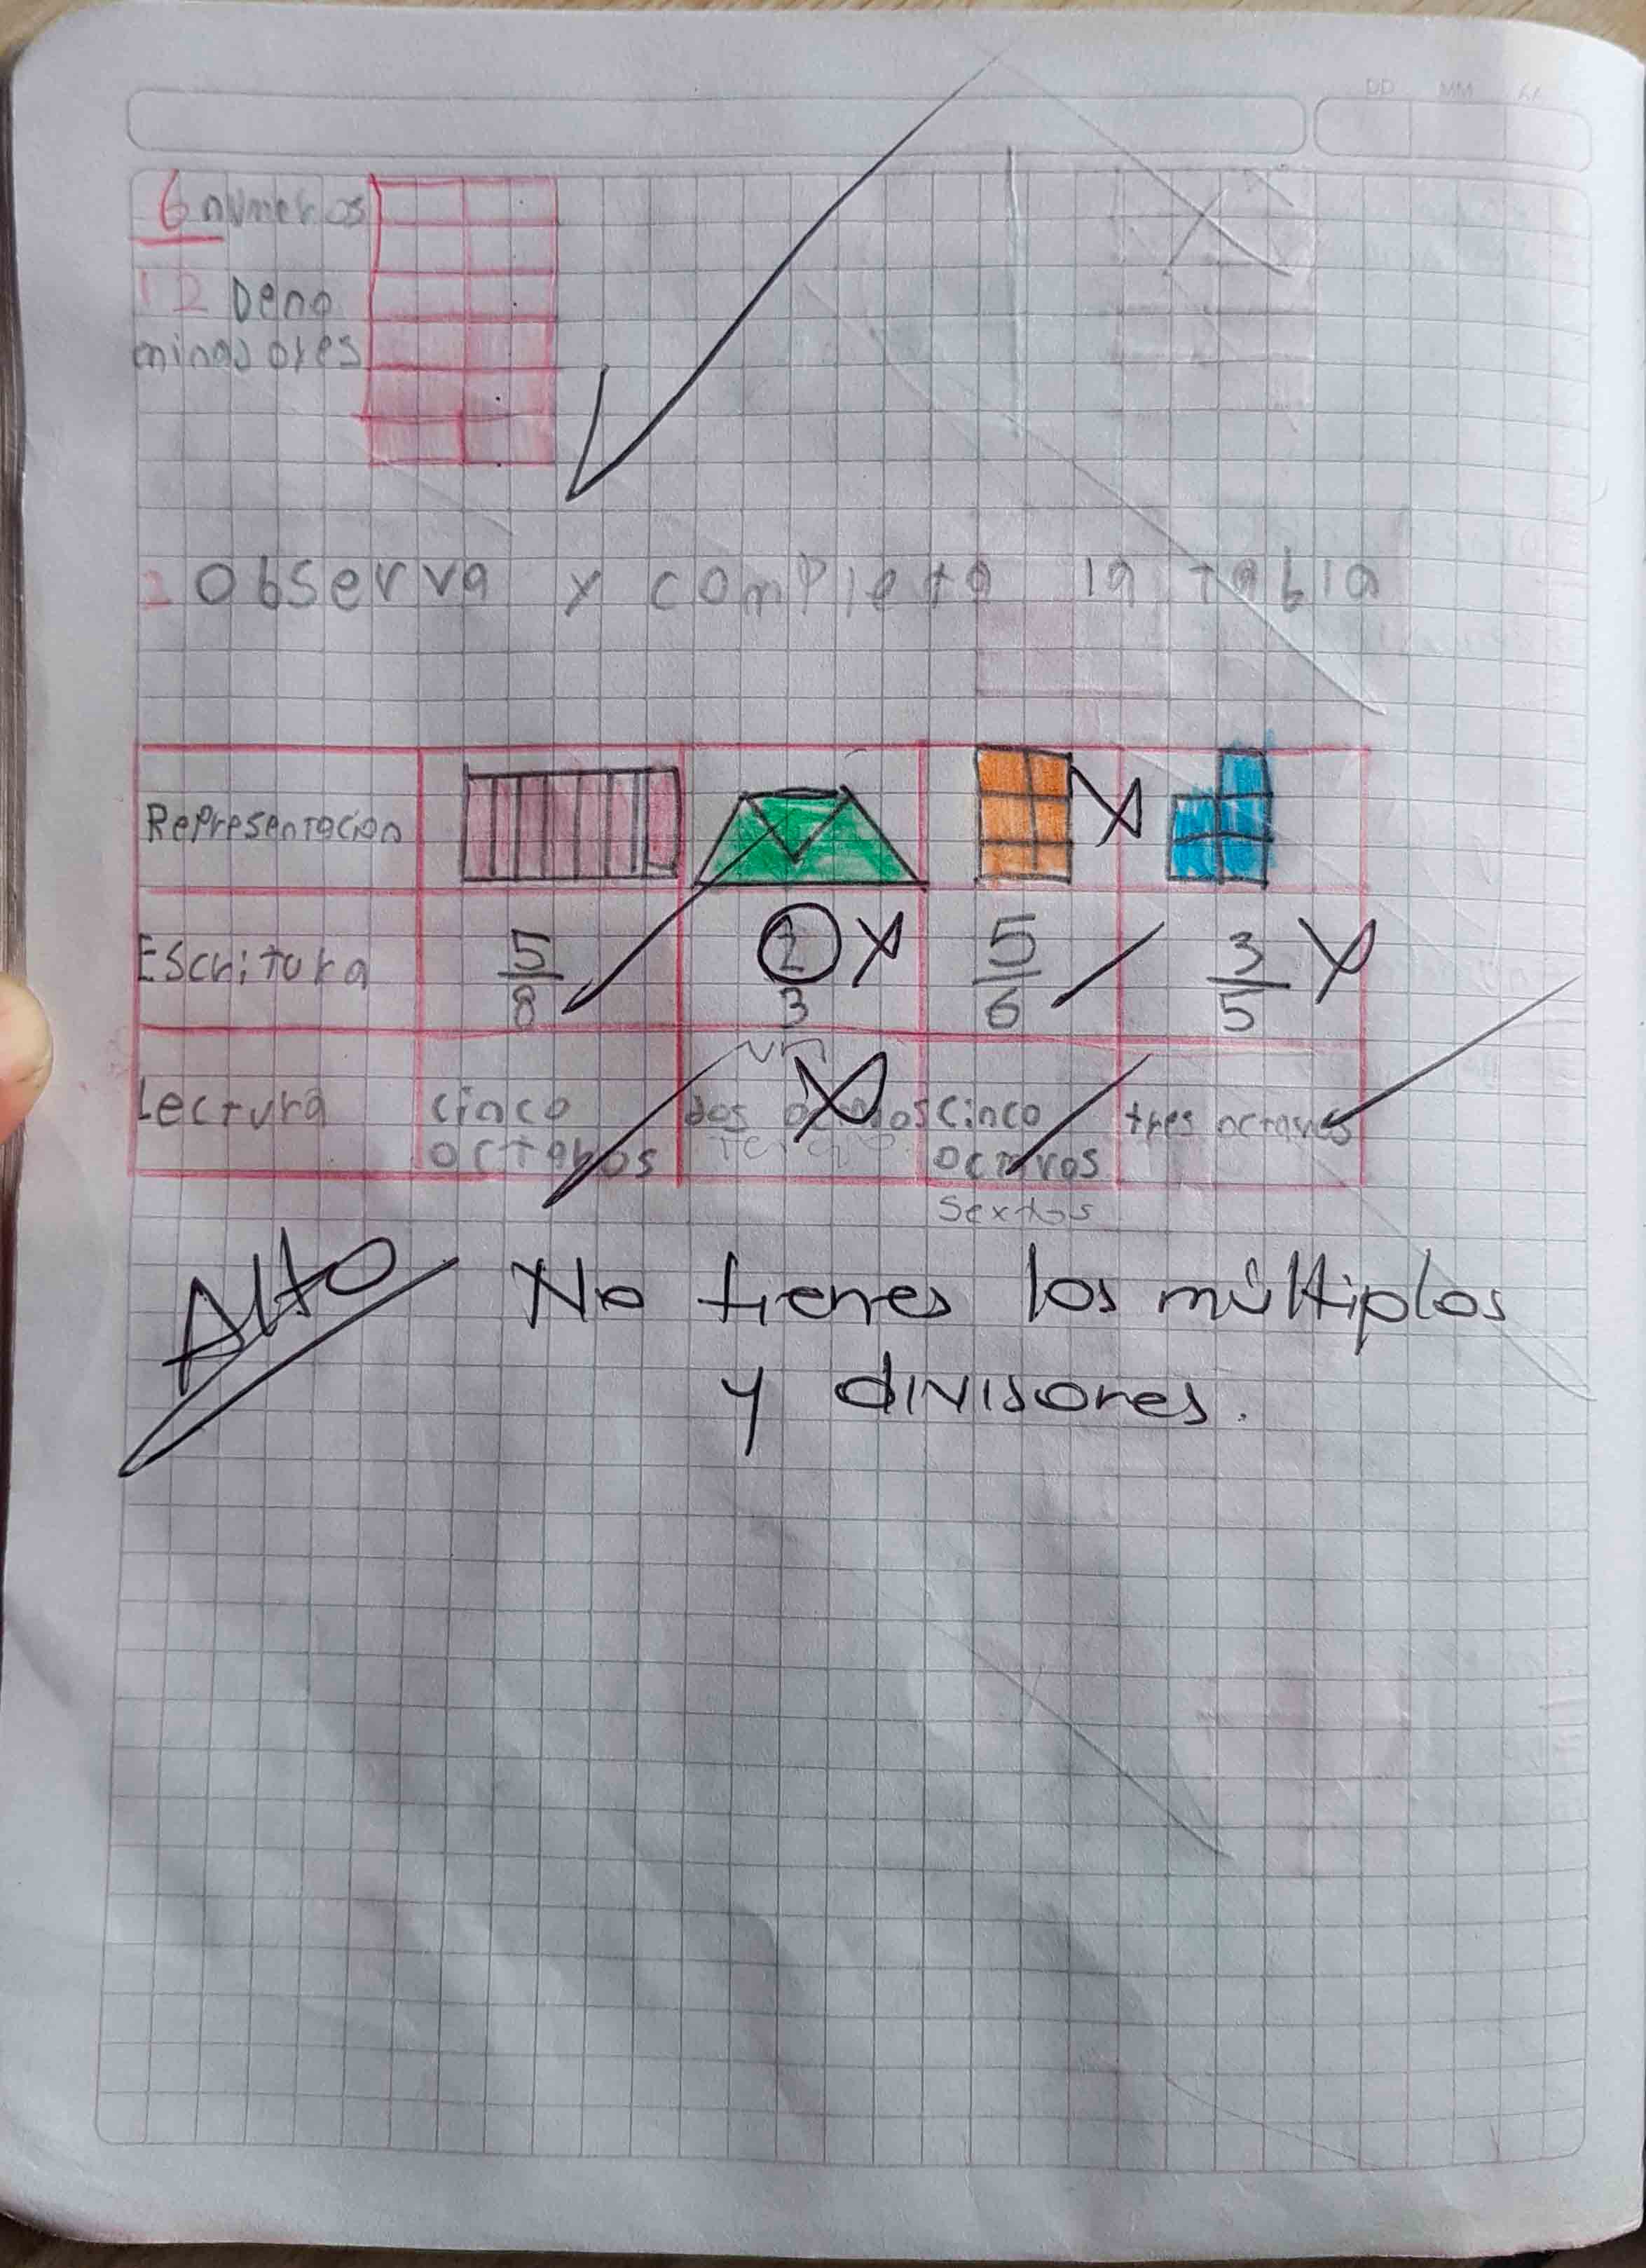 DD MM AA
6 numeros
12 Deno
minadores
2 Observa y completa la tabla
Representacion
Escritura 5/8 2/3 5/6 3/5
un
Lectura cinco dos cinco tres octavos
octavos octavos
sextos
Alto No tienes los múltiplos
y divisores.